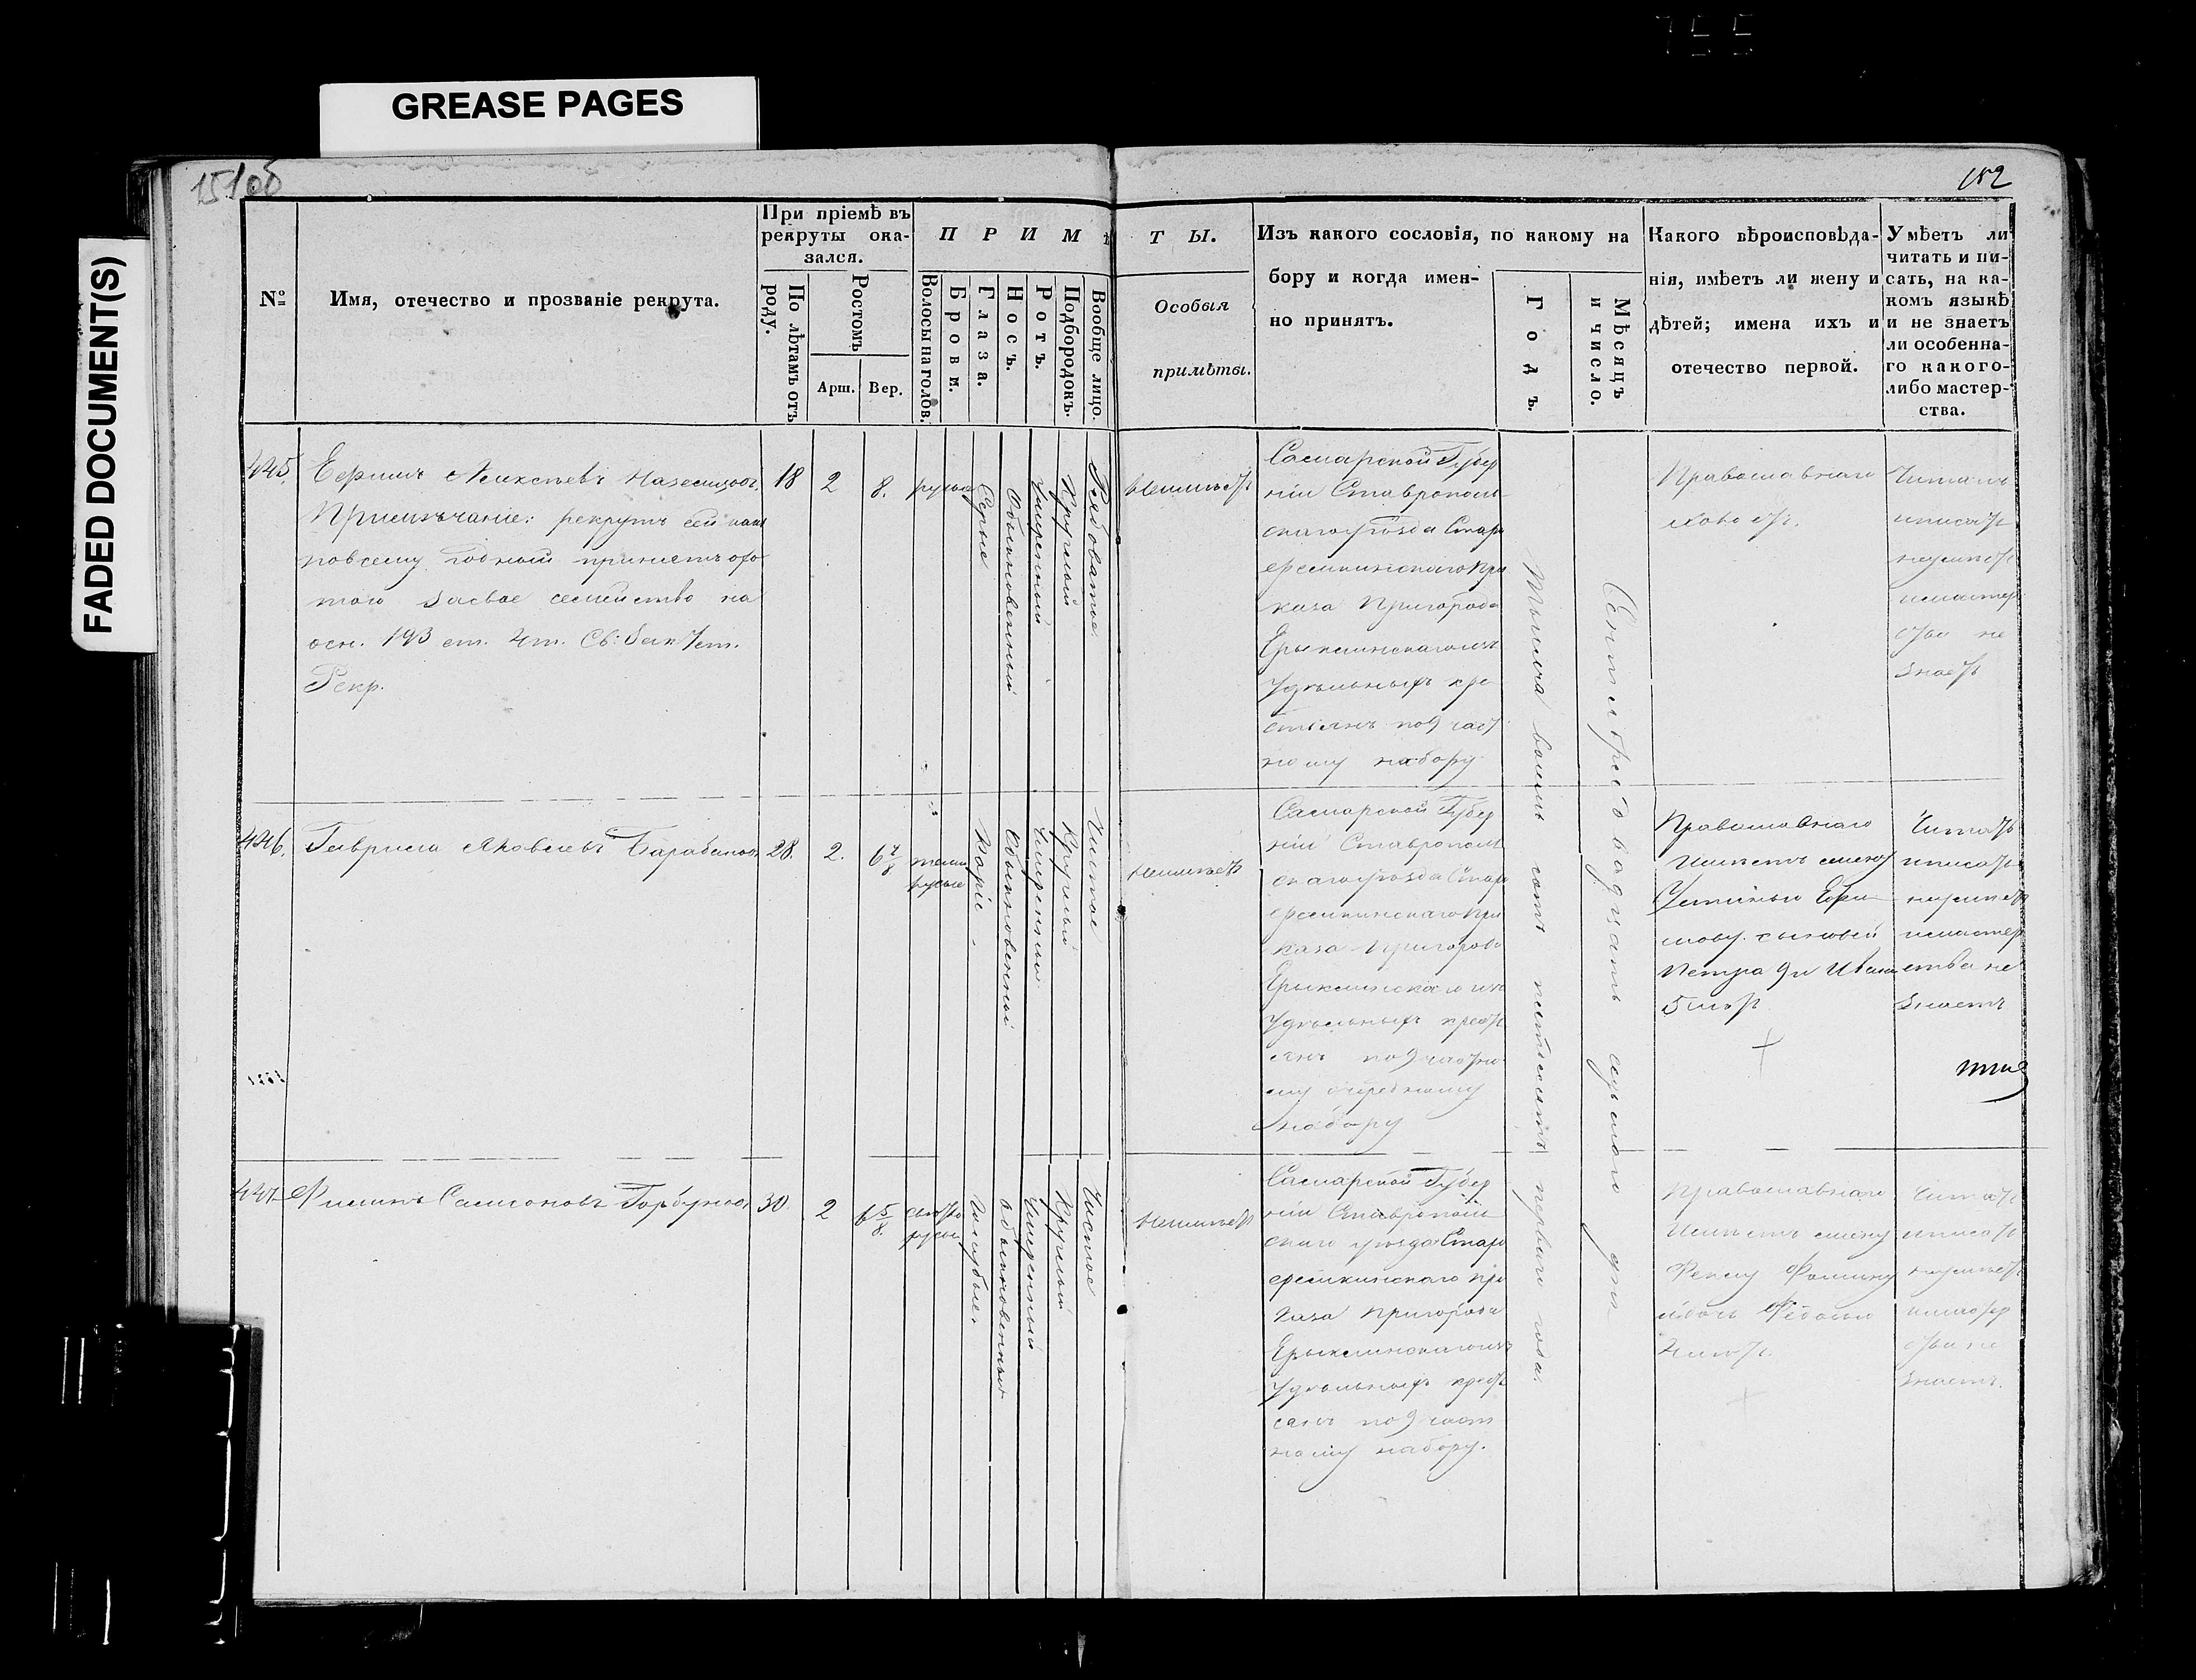 GREASE PAGES
FADED DOCUMENT(S)
151 об
152
№
Имя, отечество и прозваніе рекрута.
При пріемѣ въ
рекруты ока-
зался.
По лѣтамъ отъ
роду.
Ростомъ
Арш.
Вер.
П Р И М Ѣ
Волосы на голов.
Брови.
Глаза.
Носъ.
Ротъ.
Подбородокъ.
Вообще лицо.
Т Ы.
Особыя
примѣты.
Изъ какого сословія, по какому на
бору и когда имен-
но принятъ.
Годъ.
Мѣсяцъ
и число.
Какого вѣроисповѣда-
нія, имѣетъ ли жену и
дѣтей; имена ихъ и
отечество первой.
Умѣетъ ли
читать и пи-
сать, на ка-
комъ языкѣ
и не знаетъ
ли особенна-
го какого-
либо мастер-
ства.
445.
Примѣчаніе: рекрутъ сей
повсему годный принятъ
того за свое семейство на
осн. 193 ст. 4 т. Св:
Рекр.
18
2
8.
русые
Серые
Обыкновенный
Умеренный
Круглый
Рябоватое
Неимѣетъ
Самарской Губер
ніи Ставрополь
скаго уѣзда Старо
каза Пригорода
Ерыклинскаго изъ
Удѣльныхъ кре
стьянъ по 9 част
ному набору
Тысяча восемь сотъ пятьдесятъ перваго года.
Сентября двадцать седьмого дня
Православнаго
холостъ.
Читать
и писать
неумѣетъ
и мастер
ства не
знаетъ
446.
Гаврила Яковлевъ Барабановъ
28.
2.
6 7/8
темно
русые
Каріе
Обыкновенный
Умеренный
Круглый
Чистое
Неимѣетъ
Самарской Губер
ніи Ставрополь
скаго уѣзда Старо
каза Пригорода
Ерыклинскаго изъ
Удѣльныхъ крест
янъ по 9 частно
му очередному
набору
Православнаго
Имѣетъ жену
Устинью Ефи
мову. сыновей
Петра 9 и Ивана
5 лѣтъ
Читать
и писать
неумѣетъ
и мастер
ства не
знаетъ
447
Филипъ Самсоновъ Горбуновъ
30.
2
6 5/8.
светло
русые
Голубые
обыкновенный
Умеренный
Круглый
Чистое
Неимѣетъ
Самарской Губер
ніи Ставрополь
скаго уѣзда Старо
каза Пригорода
Ерыклинскаго изъ
Удѣльныхъ крест
янъ по 9 част
ному набору.
Православнаго
Имѣетъ жену
Феклу Фомину
Читать
и писать
неумѣетъ
и мастер
ства не
знаетъ.